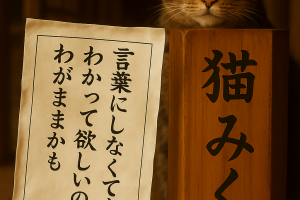 言葉にしなくて
わかって欲しいの
わがままかも
猫みく